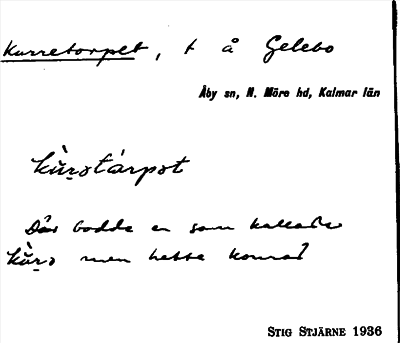 Kurretorpet, t å Gelebo
Åby sn, N. Möre hd, Kalmar län
kùrətàrpət
Där bodde en som kallade
kùrə men hette Konrad
STIG STJÄRNE 1936